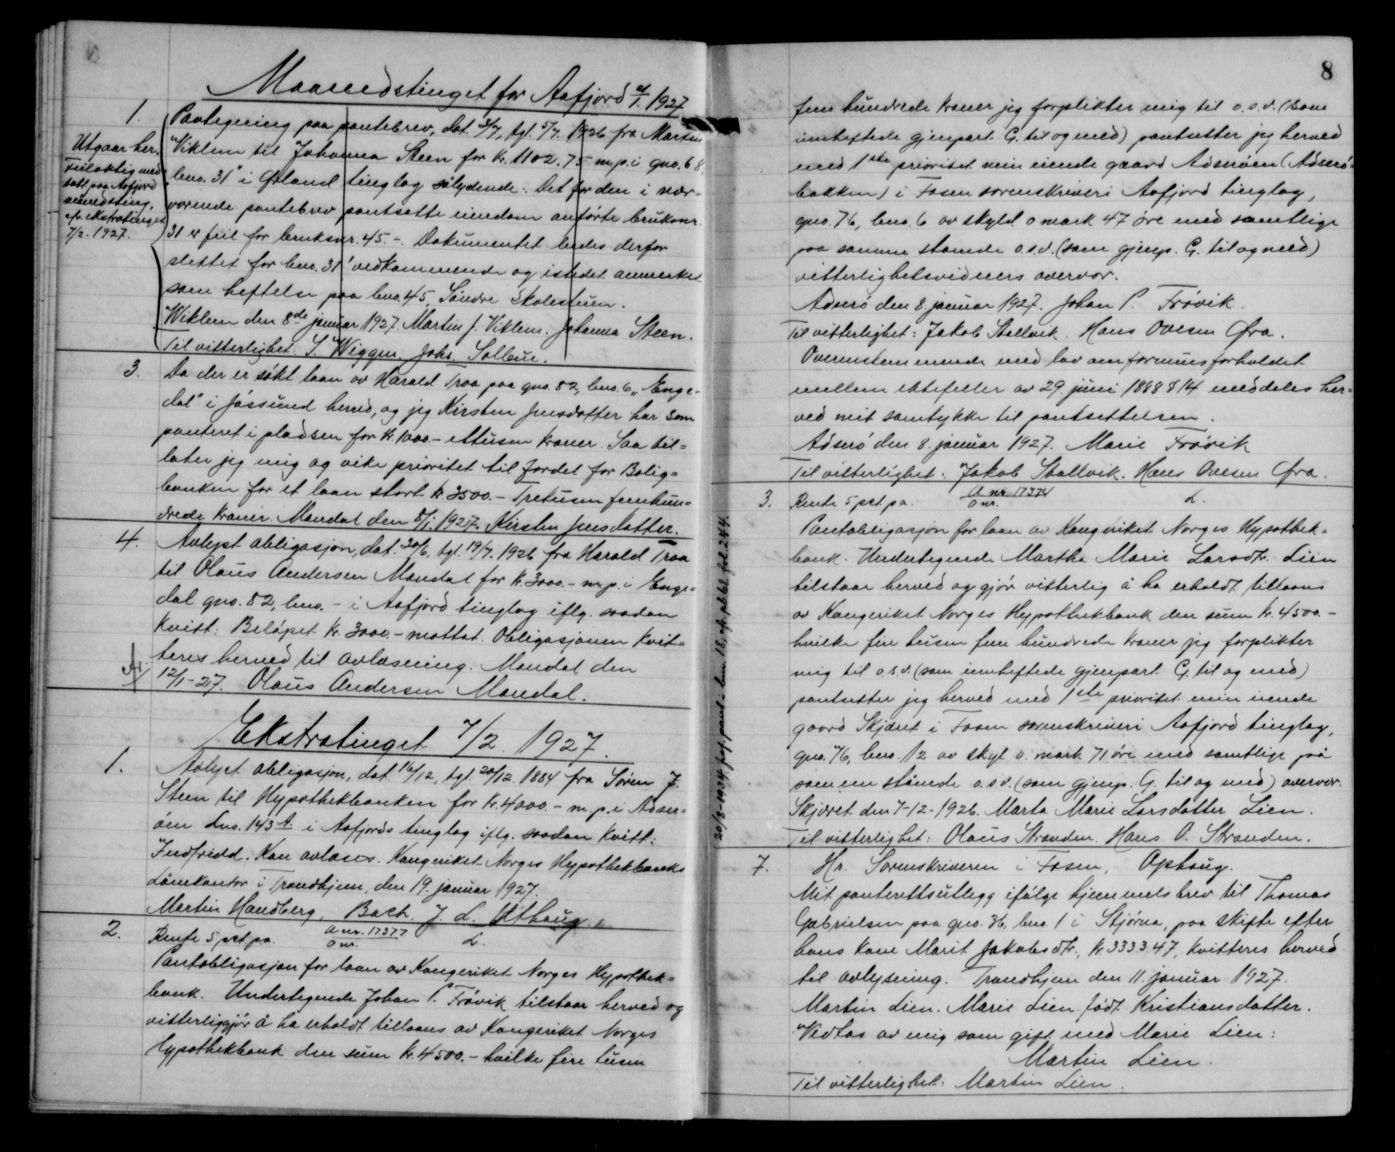 Maanedstinget for Aafjord 4/1. 1927
1.
Utgaar her.
Feilaktig med-
tatt paa Aafjord
maanedsting,
efr. ekstratinget
7/2. 1927.
Paategning paa pantebrev, dat. 3/7, tgl. 5/7. 1926 fra Martin
Viklem til Johanna Steen for kr. 1102.75 m.p.i gno. 68,
bno. 31 i Ørland tinglag sålydende: Det for den i nær-
værende pantebrev pantsatte eiendom anførte bruksnr.
31 er feil for bruksnr. 45.-. Dokumentet bedes derfor
slettet for bno. 31's vedkommende og istedet anmerket
som heftelse paa bno. 45, Søndre Skolestuen.
Wiklem den 8de januar 1927. Martin J. Viklem. Johanna Steen.
Til vitterlighet: S. Wiggen. Johs. Solbue.
3.
Da der er søkt laan av Harald Troa paa gno. 82, bno. 6, "Enge-
dal" i Jøssund herred, og jeg Kirsten Jensdatter har som
panteret i pladsen for kr. 1000.- ettusen kroner. Saa til-
later jeg mig og vike prioritet til fordel for Bolig-
banken for et laan stort kr. 3500.- Tretusen femhun-
drede kroner. Mandal den 8/1. 1927. Kirsten Jensdatter.
4.
Avlyst obligasjon, dat. 30/6, tgl. 19/7. 1926 fra Harald Troa
til Olaus Andersen Mandal for kr. 3000.- m.p.i Enge-
dal gno. 82, bno. - i Aafjord tinglag iflg. saadan
kvitt: Beløpet kr. 3000.- mottat. Obligasjonen kvit-
teres herved til avlæsning. Mandal den
12/1-27. Olaus Andersen Mandal.
Ekstratinget 7/2. 1927.
1.
Avlyst obligasjon, dat. 16/12, tgl. 20/12. 1884 fra Søren J.
Steen til Hypothekbanken for kr. 4000.- m.p.i Adser-
øen Lno. 143 A i Aafjords tinglag iflg. saadan kvitt:
Indfridd. Kan avlæses. Kongeriket Norges Hypothekbanks
Lånekontor i Trondhjem, den 19. januar 1927.
Martin Handberg. Bach. J. L. Uthaug.
2.
Rente 5 pct pa. A nr. 17377 L.
O nr.
Pantobligasjon for laan av Kongeriket Norges Hypothek-
bank. Undertegnede Johan P. Frøvik tilstaar herved og
vitterliggjør å ha erholdt tillaans av Kongeriket Norges
Hypothekbank den sum kr. 4500.- hvilke fire tusen
8
fem hundrede kroner jeg forplikter mig til o.s.v. (som
innheftede gjenpart G. til og med) pantsetter jeg herved
med 1ste prioritet min eiende gaard Adserøen (Adserø-
bakken) i Fosen sorenskriveri Aafjord tinglag,
gno. 76, bno. 6 av skyld 0 mark 47 øre med samtlige
paa samme stående o.s.v. (som gjenp. G. til og med)
vitterlighetsvidners overvær.
Adserø den 8. januar 1927. Johan P. Frøvik.
Til vitterlighet: Jakob Stallvik. Hans Ovesen Øra.
Overenstemmende med lov om formuesforholdet
mellem ektefeller av 29. juni 1888 § 14 meddeles her-
ved mit samtykke til pantsettelsen.
Adserø den 8. januar 1927. Marie Frøvik
Til vitterlighet: Jakob Stallvik. Hans Ovesen Øra.
3.
Rente 5 pct pa. A nr. 17374 L.
O nr.
Pantobligasjon for laan av Kongeriket Norges Hypothek-
bank. Undertegnede Martha Marie Larsdtr. Lien
tilstaar herved og gjør vitterlig å ha erholdt tillaans
av Kongeriket Norges Hypothekbank den sum kr. 4500.-
hvilke fire tusen fem hundrede kroner jeg forplikter
mig til o.s.v. (som innheftede gjenpart G. til og med)
pantsetter jeg herved med 1ste prioritet min eiende
gaard Skjæret i Fosen sorenskriveri Aafjord tinglag,
gno. 76, bno. 12 av skyl 0 mark 71 øre med samtlige på
sammen stående o.s.v. (som gjenp. G. til og med) overvær.
Skjæret den 7-12-1926. Marta Marie Larsdatter Lien.
Til vitterlighet: Olaus Stranden. Hans O. Stranden.
20/3-1934 paf. pant - lnn. 18. efr. pb. 68. fol. 244.
7.
Hr. Sorenskriveren i Fosen, Ophaug.
Mit panterettsutlegg ifølge hjemmelsbrev til Thomas
Gabrielsen paa gno. 36, bno. 1 i Stjørna, paa skifte efter
hans kone Marit Jakobsdtr., kr. 333347, kvitteres herved
til avlysning. Trondhjem den 11. januar 1927.
Martin Lien. Marie Lien født Kristiansdatter.
Vedtas av mig som gift med Marie Lien:
Martin Lien.
Til vitterlighet: Martin Lien.